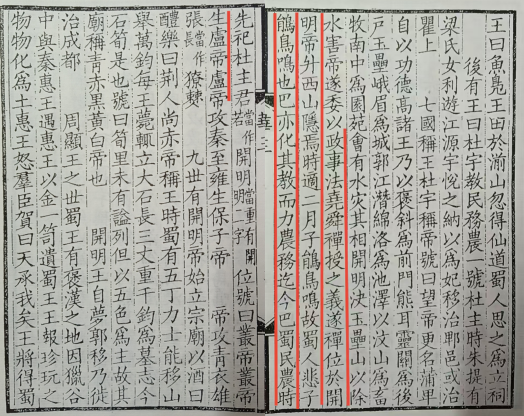 王曰魚鳧王田於湔山忽得仙道蜀人思之爲立祠
後有王曰杜宇教民務農一號杜主時朱提有
梁氏女利遊江源宇悅之納以爲妃移治郫邑或治
瞿上　七國稱王杜宇稱帝號曰望帝更名蒲卑
自以功德高諸王乃以褒斜爲前門熊耳靈關爲後
戶玉壘峨眉爲城郭江潛綿洛爲池澤以汶山爲畜
牧南中爲園苑會有水灾其相開明決玉壘山以除
水害帝遂委以政事法堯舜禪授之義遂禪位於開
明帝升西山隱焉時適二月子鵑鳥鳴故蜀人悲子
鵑鳥鳴也巴亦化其教而力農務迄今巴蜀民農時
先祀杜主君開明當重有開明字位號曰叢帝叢帝
生盧帝盧帝攻秦至雍生保子帝　帝攻青衣雄
張當作長獠僰　九世有開明帝始立宗廟以酒曰
醴樂曰荆人尚赤帝稱王時蜀有五丁力士能移山
舉萬鈞每王薨輒立大石長三丈重千鈞爲墓志今
石筍是也號曰筍里未有謚列但以五色爲主故其
廟稱青赤黑黃白帝也　開明王自夢郭移乃徙
治成都　周顯王之世蜀王有褒漢之地因獵谷
中與秦惠王遇惠王以金一笥遺蜀王王報珍玩之
物物化爲土惠王怒羣臣賀曰天承我矣王將得蜀